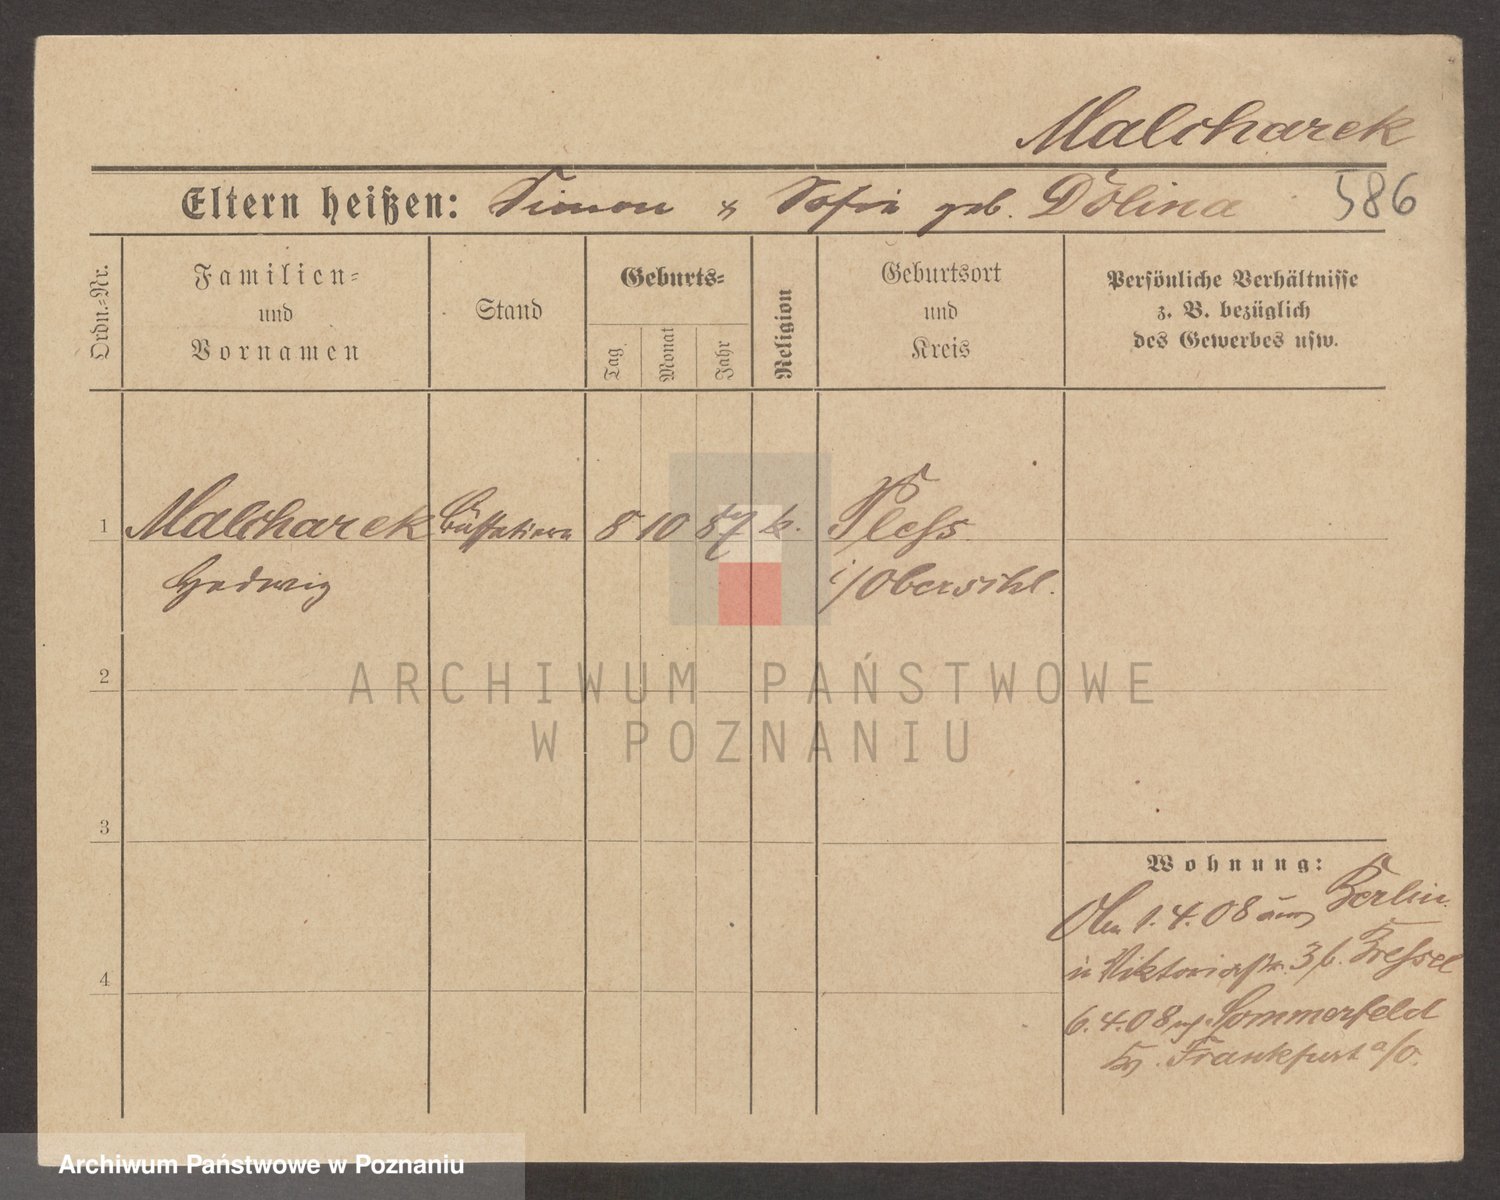 Malcharek
Eltern heißen: Simon & Sofie geb. Dolina 586
Ordn.-Nr.
Familien-
und
Vornamen
Stand
Geburts-
Tag
Monat
Jahr
Religion
Geburtsort
und
Kreis
Persönliche Verhältnisse
z. B. bezüglich
des Gewerbes usw.
1 Malcharek Büffetiere 8 10 87 k. Pless
Hedwig i/Oberschl.
2
ARCHIWUM PAŃSTWOWE
W POZNANIU
3
Wohnung:
1.4.08 aus Berlin
in Viktoriastr. 3 b.
4
6.4.08 Sommerfeld
Frankfurt a/O.
Archiwum Państwowe w Poznaniu